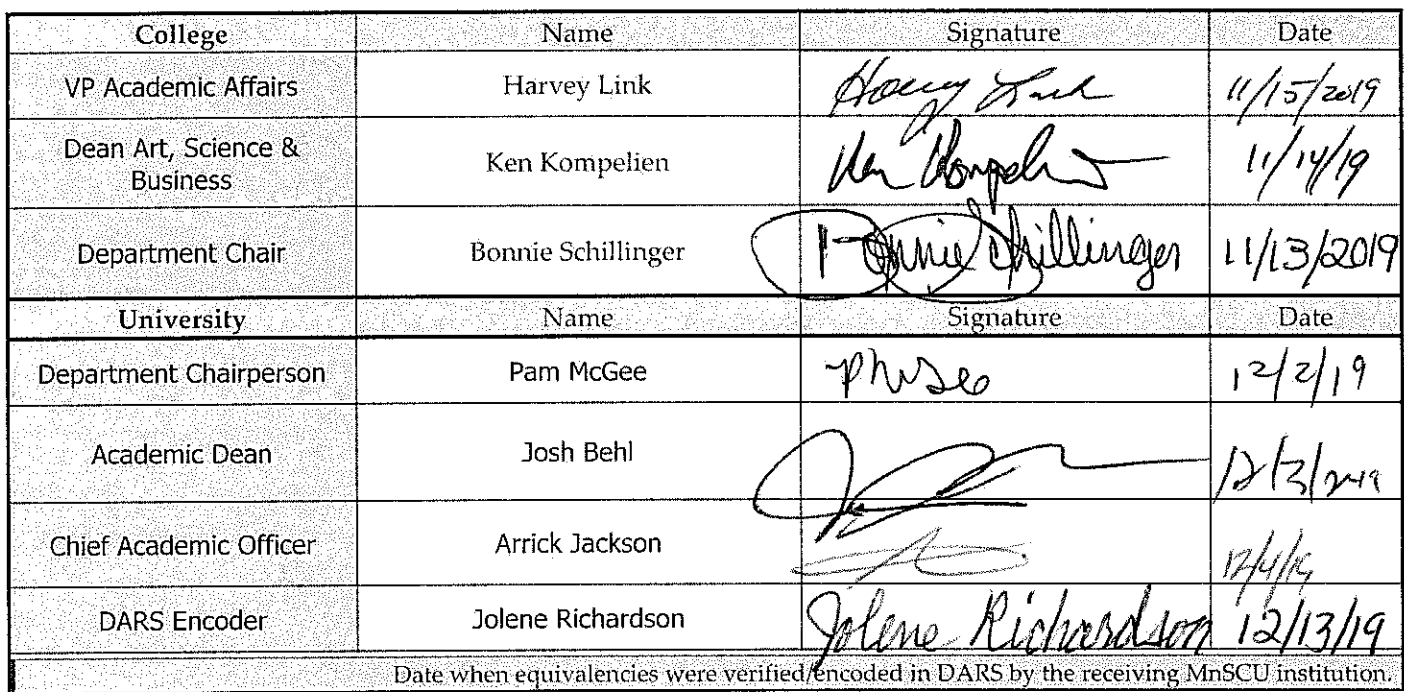 College Name Signature Date
VP Academic Affairs Harvey Link Harvey Link 11/15/2019
Dean Art, Science &
Business Ken Kompelien Ken Kompelien 11/14/19
Department Chair Bonnie Schillinger Bonnie Schillinger 11/13/2019
University Name Signature Date
Department Chairperson Pam McGee 12/2/19
Academic Dean Josh Behl 12/3/2019
Chief Academic Officer Arrick Jackson 12/4/19
DARS Encoder Jolene Richardson Jolene Richardson 12/13/19
Date when equivalencies were verified/encoded in DARS by the receiving MnSCU institution.